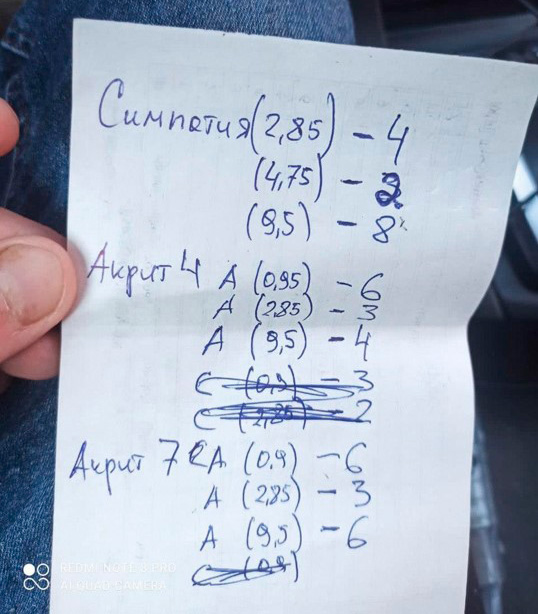 Симпатия (2,85) - 4
(4,75) - 2
(9,5) - 8
Акрит 4 А (0,95) - 6
А (2,85) - 3
А (9,5) - 4
С (0,9) - 3
С (2,85) - 2
Акрит 7 А (0,9) - 6
А (2,85) - 3
А (9,5) - 6
С (0,9)
REDMI NOTE 8 PRO
AI QUAD CAMERA